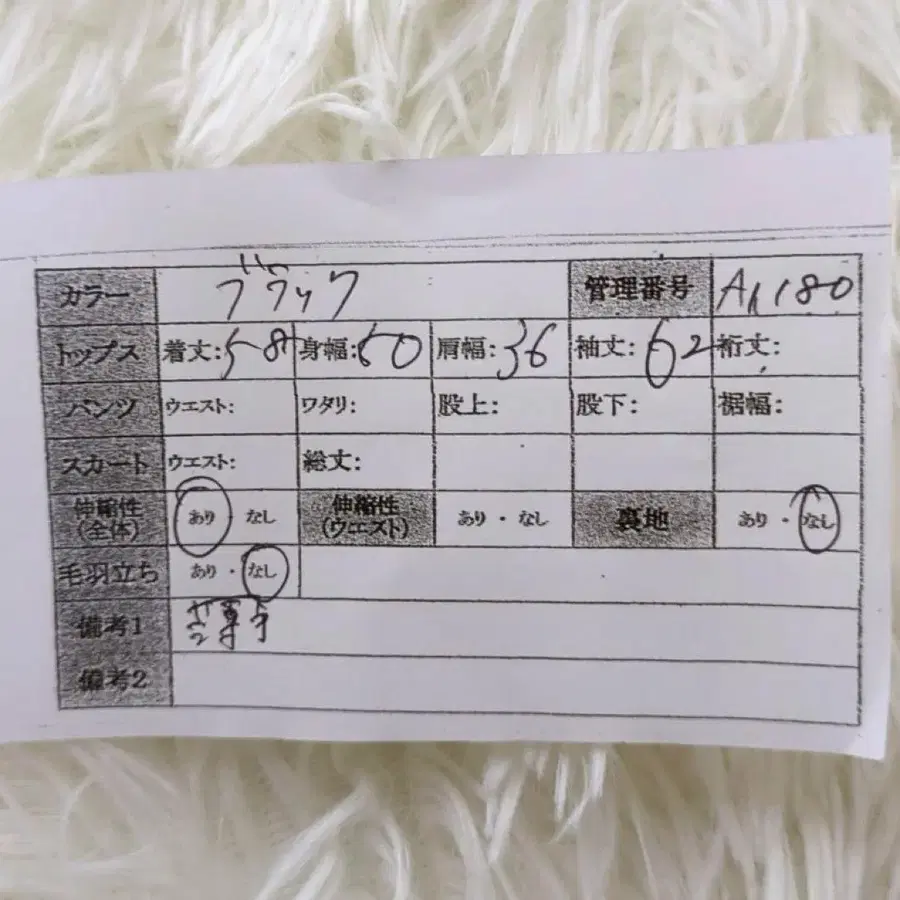 カラー ブラック 管理番号 A1180
トップス 着丈:58 身幅:50 肩幅:36 袖丈:62 裄丈:
パンツ ウエスト: ワタリ: 股上: 股下: 裾幅:
スカート ウエスト: 総丈:
伸縮性(全体) あり なし 伸縮性(ウエスト) あり・なし 裏地 あり・なし
毛羽立ち あり・なし
備考1
備考2